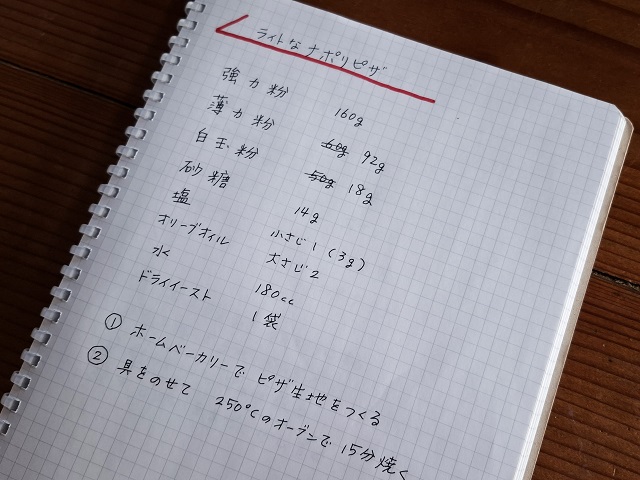 ライトなナポリピザ
強力粉 160g
薄力粉 60g 92g
白玉粉 50g 18g
砂糖 14g
塩 小さじ1 (3g)
オリーブオイル 大さじ2
水 180cc
ドライイースト 1袋
① ホームベーカリーで ピザ生地をつくる
② 具をのせて 250℃のオーブンで 15分焼く